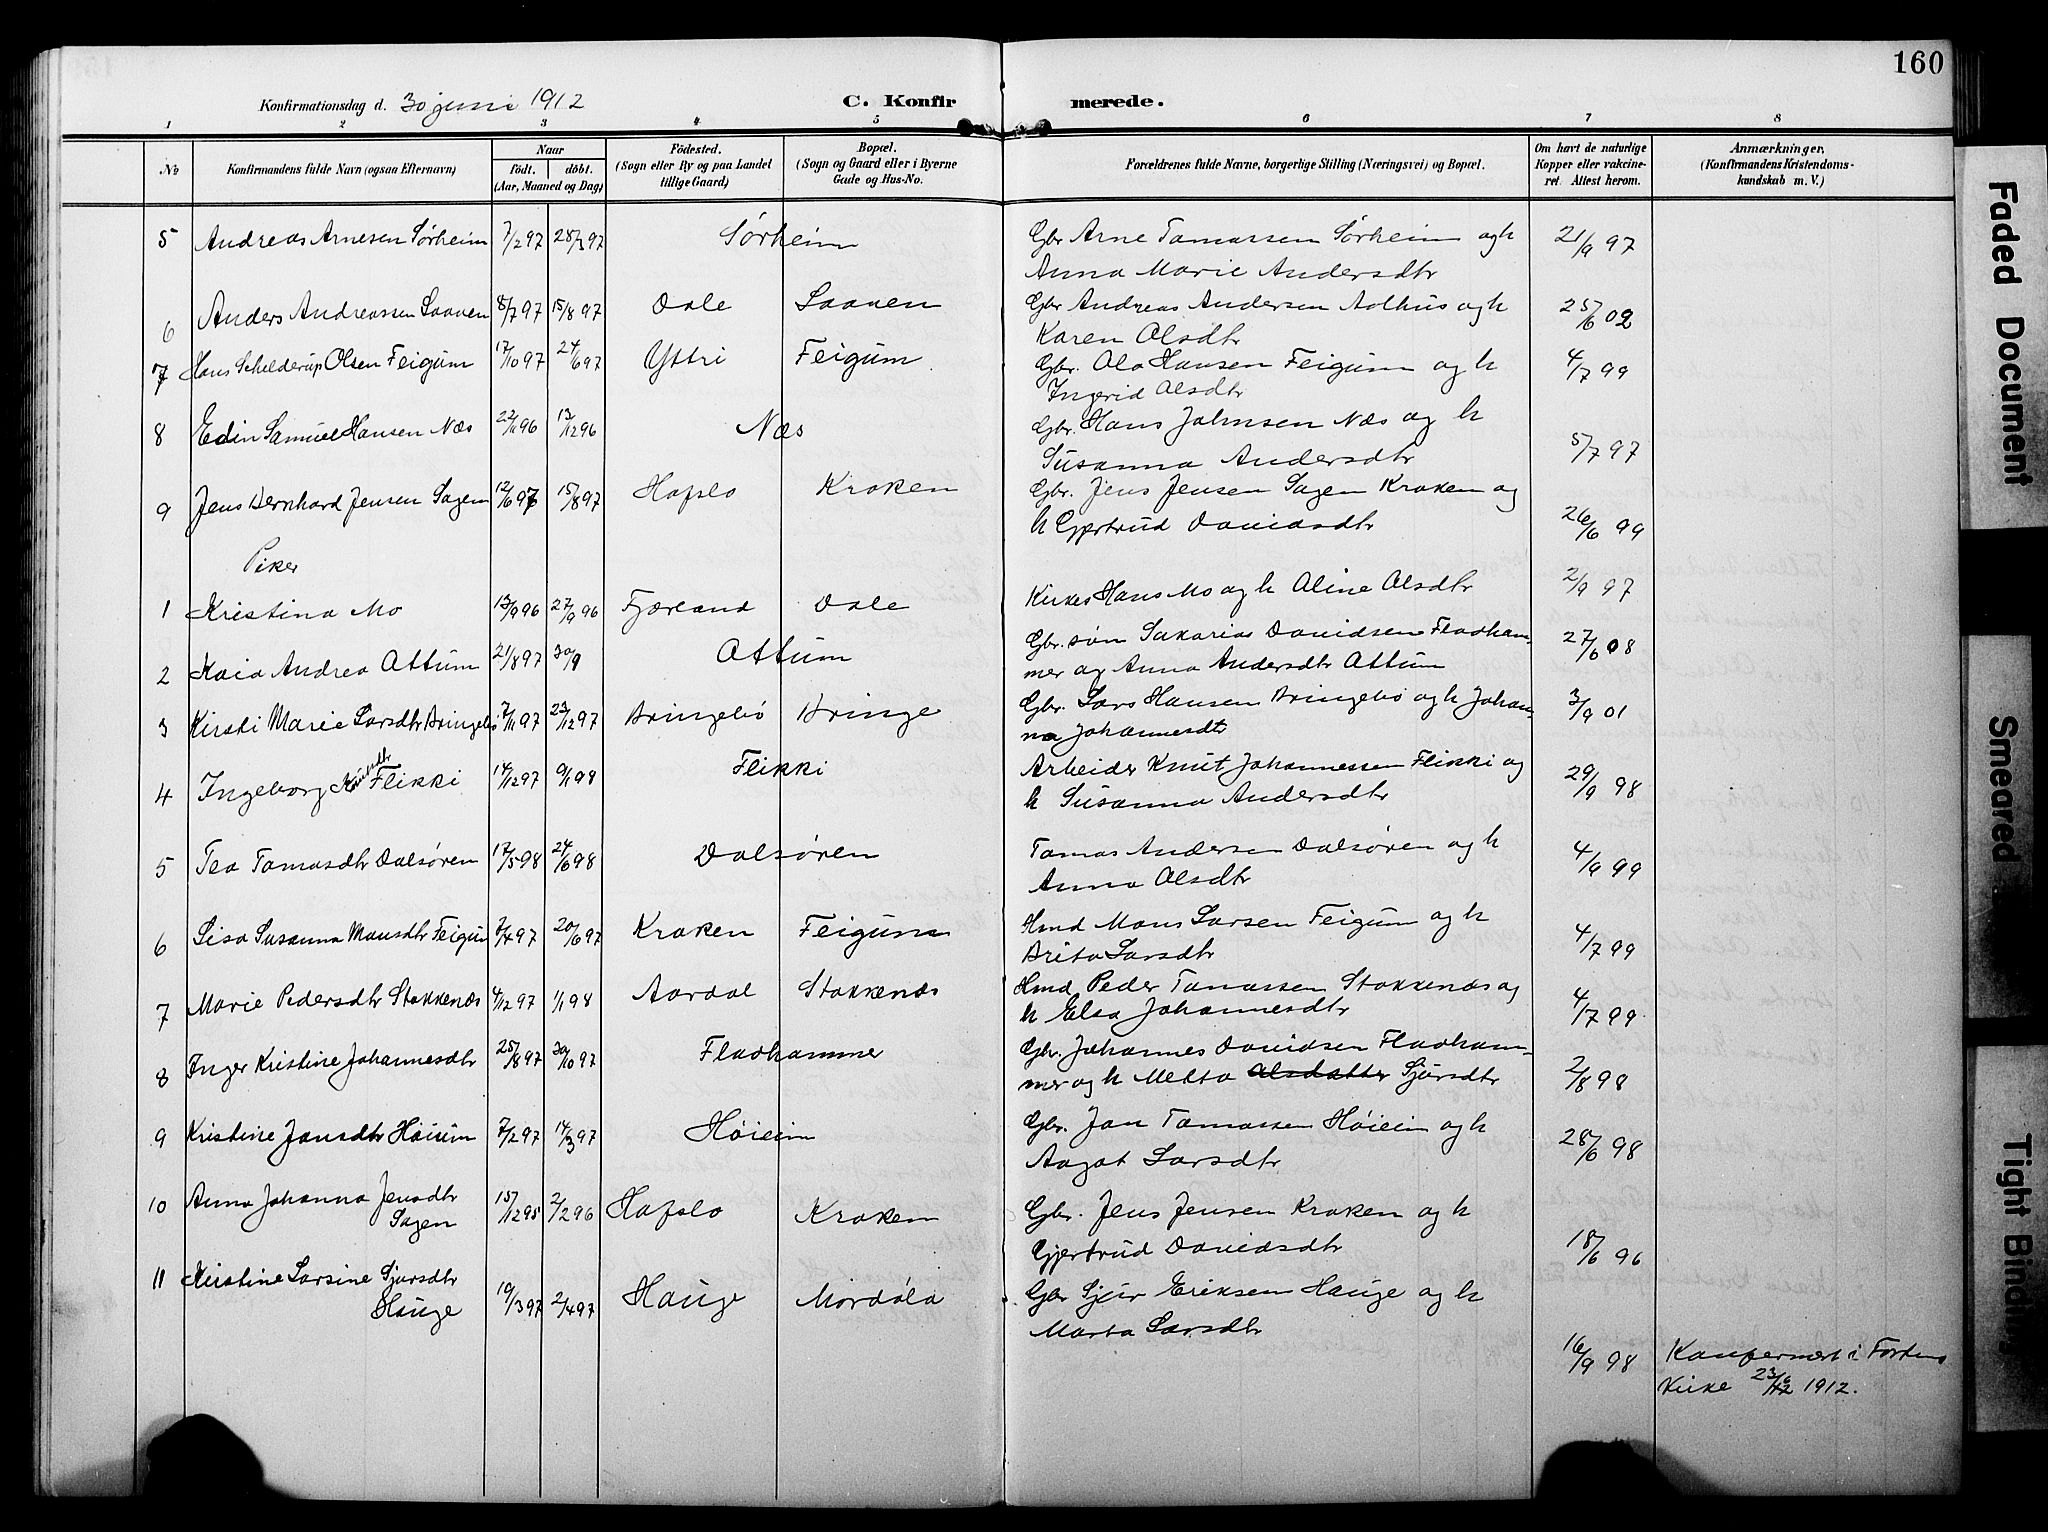 160
Konfirmationsdag d. 30 juni 1912
C. Konfirmerede.
1 2 3 4 5 6 7 8
No
Konfirmandens fulde Navn (ogsaa Efternavn)
Naar
födt. döbt.
(Aar, Maaned og Dag)
Födested.
(Sogn eller By og paa Landet
tillige Gaard)
Bopæl.
(Sogn og Gaard eller i Byerne
Gade og Hus-No.
Forældrenes fulde Navne, borgerlige Stilling (Næringsvei) og Bopæl.
Om havt de naturlige
Kopper eller vakcine-
ret. Attest herom.
Anmærkninger,
(Konfirmandens Kristendoms-
kundskab m. V.)
5 Andreas Arnesen Sørheim 7/2 97 28/3 97 Sørheim Gbr Arne Tomassen Sørheim og h 21/9 97
Anna Marie Andersdtr
6 Anders Andreassen Laaven 8/7 97 15/8 97 Dale Laaven Gbr Andreas Andersen Aolhus og h 25/6 02
Karen Olsdtr
7 Hans Schelderup Olsen Feigum 17/10 97 24/6 97 Yttri Feigum Gbr. Ola Hansen Feigum og h 4/7 99
Ingerid Olsdtr
8 Edin Samuel Hansen Næs 22/11 96 13/12 96 Næs Gbr. Hans Johnsen Næs og h
Susanna Andersdtr 5/7 97
9 Jens Bernhard Jensen Sagen 12/6 97 15/8 97 Hafslo Kroken Gbr. Jens Jensen Sagen Kroken og
h Gjertrud Davidsdtr 26/6 99
Piker
1 Kristina Mo 13/9 96 27/9 96 Fjærland Dale Kirkes Hans Mo og h Aline Olsdtr 2/9 97
2 Kaia Andrea Ottum 21/8 97 30/9 Ottum Gbr. søn Sakarias Davidsen Fladham-
mer og Anna Andersdtr Ottum 27/6 08
3 Kirsti Marie Larsdtr Bringebø 7/11 97 23/12 97 Bringebø Bringe Gbr. Lars Hansen Bringebø og h Johan-
na Johannesdtr 3/9 01
4 Ingeborg Knutsdtr Flikki 14/12 97 9/1 98 Flikki Arbeider Knut Johannessen Flikki og
h Susanna Andersdtr 29/9 98
5 Tea Tomasdtr Dalsøren 17/5 98 24/6 98 Dalsøren Tomas Andersen Dalsøren og h
Anna Olsdtr 4/9 99
6 Lisa Susanna Monsdtr Feigum 8/4 97 20/6 97 Kroken Feigum Hmd Mons Larsen Feigum og h
Brita Larsdtr 4/7 99
7 Marie Pedersdtr Stokkenæs 4/12 97 1/1 98 Aardal Stokkenæs Hmd Peder Tomassen Stokkenæs og
h Elsa Johannesdtr 4/7 99
8 Inger Kristine Johannesdtr 25/8 97 30/10 97 Fladhammer Gbr. Johannes Davidsen Fladham-
mer og h Metta Olsdatter Sjursdtr 2/8 98
9 Kristine Jonsdtr Høium 7/2 97 14/3 97 Høieim Gbr. Jon Tomassen Høieim og h
Aagot Larsdtr 28/6 98
10 Anna Johanna Jensdtr
Sagen 15/12 95 2/2 96 Hafslo Kroken Gbr. Jens Jensen Kroken og h
Gjertrud Davidsdtr 18/6 96
11 Kristine Larsine Sjursdtr
Hauge 19/3 97 2/4 97 Hauge Mordøla Gbr Sjur Eriksen Hauge og h
Marta Larsdtr
16/9 98 Konfermert i Fortun
Kirke 23/6 1912.
Faded Document
Smeared
Tight Binding